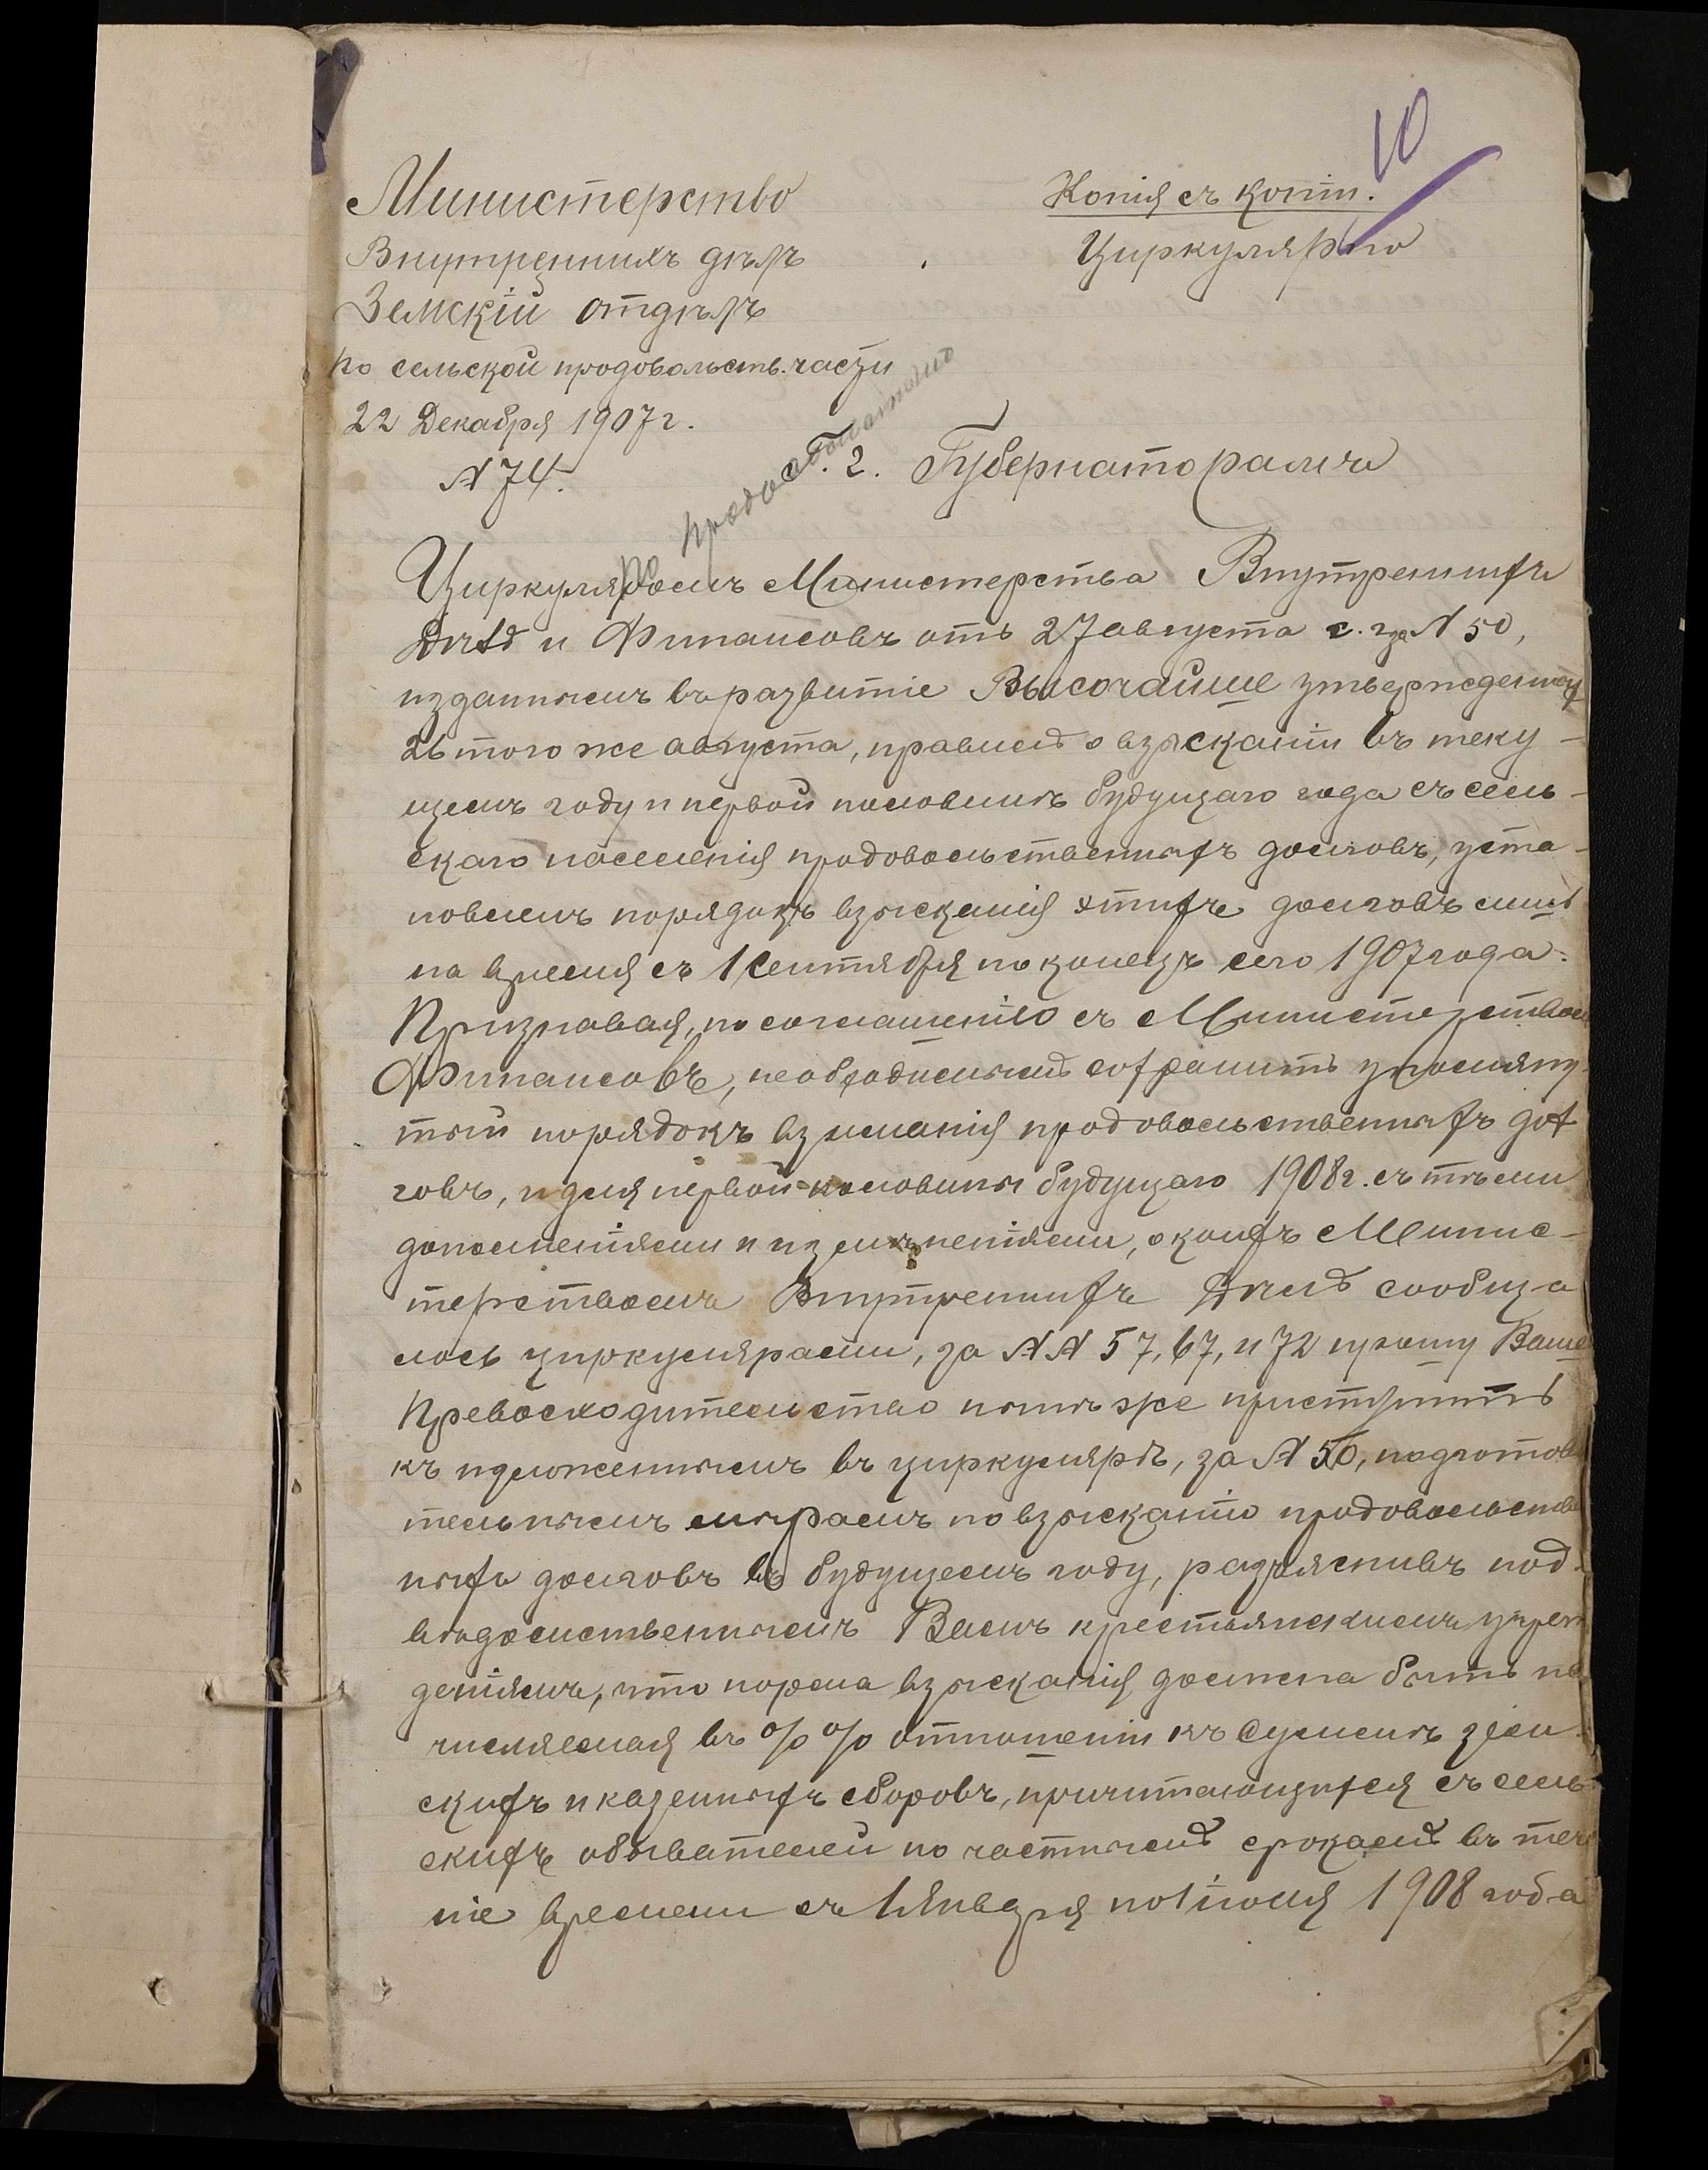 10
Министерство
Внутреннихъ дѣлъ
Земскій отдѣлъ
по сельской продовольств. части
22 Декабря 1907 г.
№ 74.
Копія съ копіи.
Циркулярно
Г.г. Губернаторамъ
Циркуляромъ Министерства Внутреннихъ
Дѣлъ и Финансовъ отъ 27 августа с.г. за № 50,
изданнымъ въ развитіе Высочайше утвержденныхъ
26 того же августа, правилъ о взысканіи въ теку-
щемъ году и первой половинѣ будущаго года съ сель-
скаго населенія продовольственныхъ долговъ, уста-
новленъ порядокъ взысканія этихъ долговъ лишь
на время съ 1 Сентября по конецъ сего 1907 года.
Признавая, по соглашенію съ Министерствомъ
Финансовъ, необходимымъ сохранить упомяну-
тый порядокъ взиманія продовольственныхъ дол
говъ, и для первой половины будущаго 1908 г. съ тѣми
дополненіями и измѣненіями, о коихъ Минис-
терствомъ Внутреннихъ Дѣлъ сообща
лось циркулярами, за №№ 57, 67, и 72 прошу Ваше
Превосходительство нынѣ же приступить
къ изложеннымъ въ циркулярѣ, за № 50, подготови
тельнымъ мѣрамъ по взысканію продовольствен
ныхъ долговъ въ будущемъ году, разъяснивъ под-
вѣдомственнымъ Вамъ крестьянскимъ учреж
деніямъ, что норма взысканія должна быть ис
числяемая въ %% отношеніи къ суммѣ зем-
скихъ и казенныхъ сборовъ, причитающихся съ сель-
скихъ обывателей по частнымъ срокамъ въ тече
ніе времени съ 1 Января по 1 іюля 1908 года